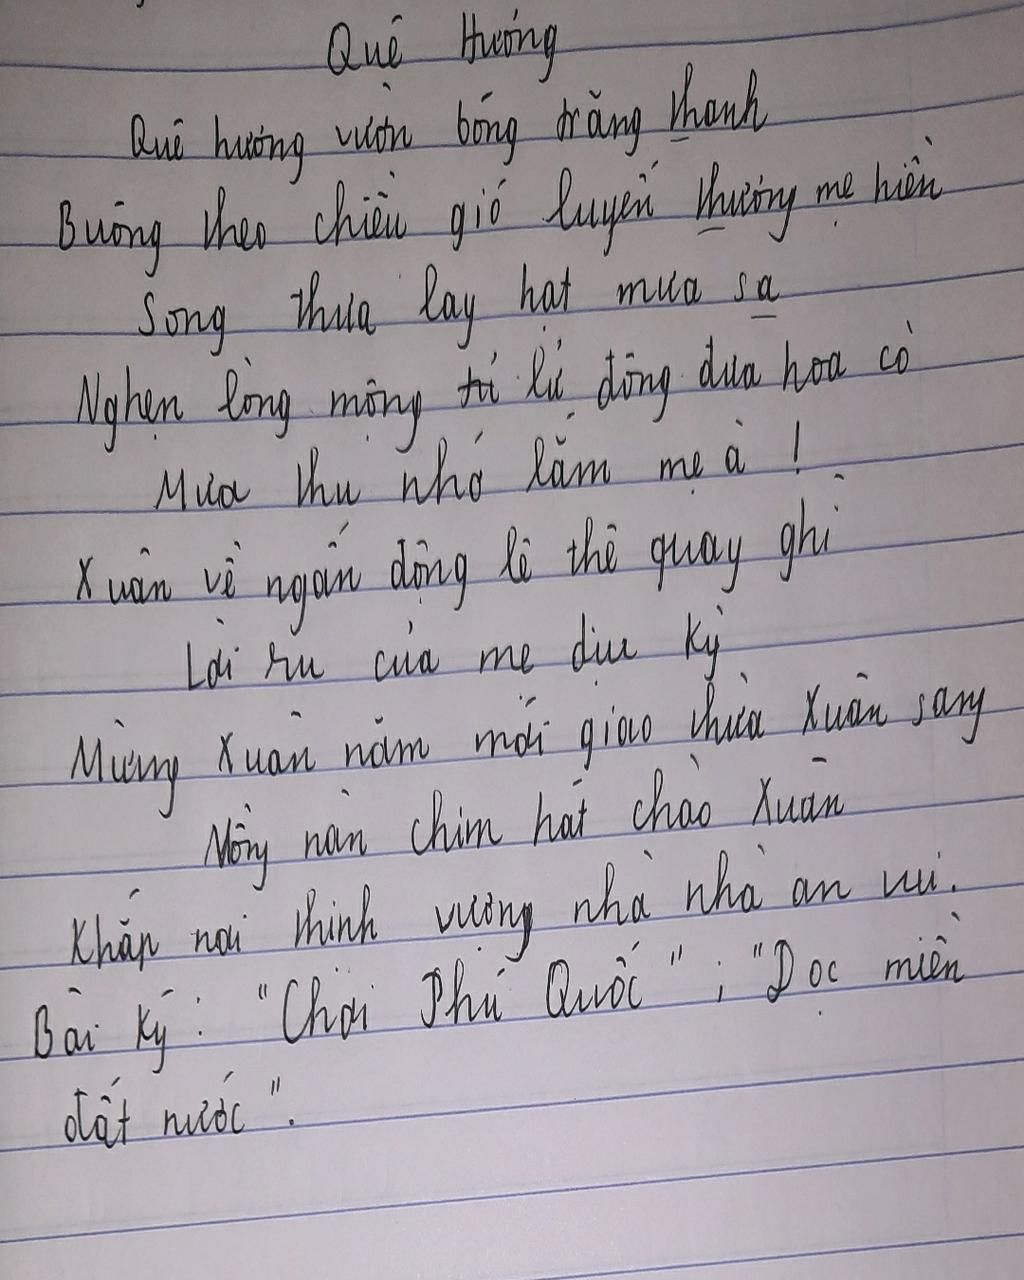 Quê Hương
Quê hương vườn bóng trăng thanh
Buông theo chiều gió luyến thương mẹ hiền
Song thưa lay hạt mưa sa
Nghẹn lòng mộng lự đông đưa hoa cỏ
Mưa thu nhớ lắm mẹ à !
Xuân về ngắn động lê thê quay ghì
Lời ru của mẹ dịu kỳ
Mừng Xuân năm mới giao thừa Xuân sang
Nồng nàn chim hát chào Xuân
Khắp nơi thinh vương nhà nhà an vui.
Bài ký : "Chơi Phú Quốc" ; "Dọc miền
đất nước".